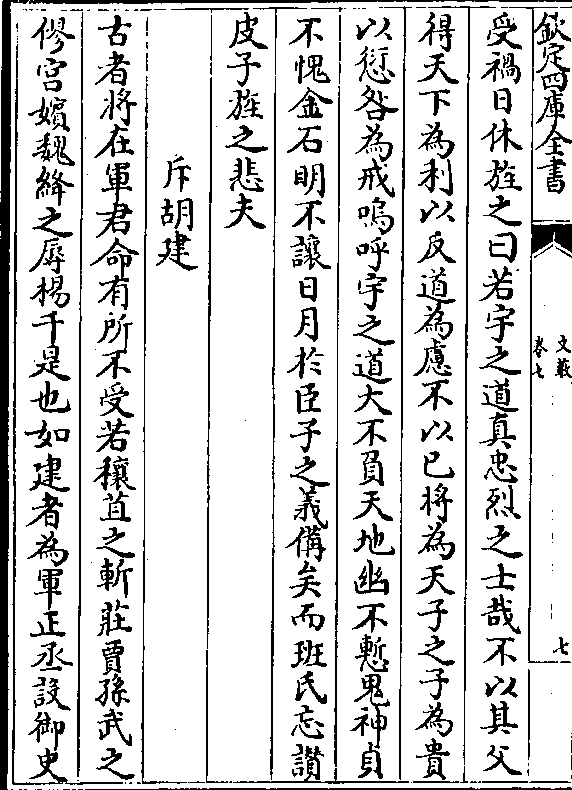 欽定四庫全書
文藪
卷七
七
受禍日休旌之曰若宇之道真忠烈之士哉不以其父
得天下為利以反道為慮不以已將為天子之子為貴
以愆咎為戒嗚呼宇之道大不負天地幽不慙鬼神貞
不愧金石明不讓日月於臣子之義備矣而班氏忘讃
皮子旌之悲夫
斥胡建
古者將在軍君命有所不受若穰苴之斬莊賈孫武之
僇宮嬪魏絳之辱楊干是也如建者為軍正丞設御史